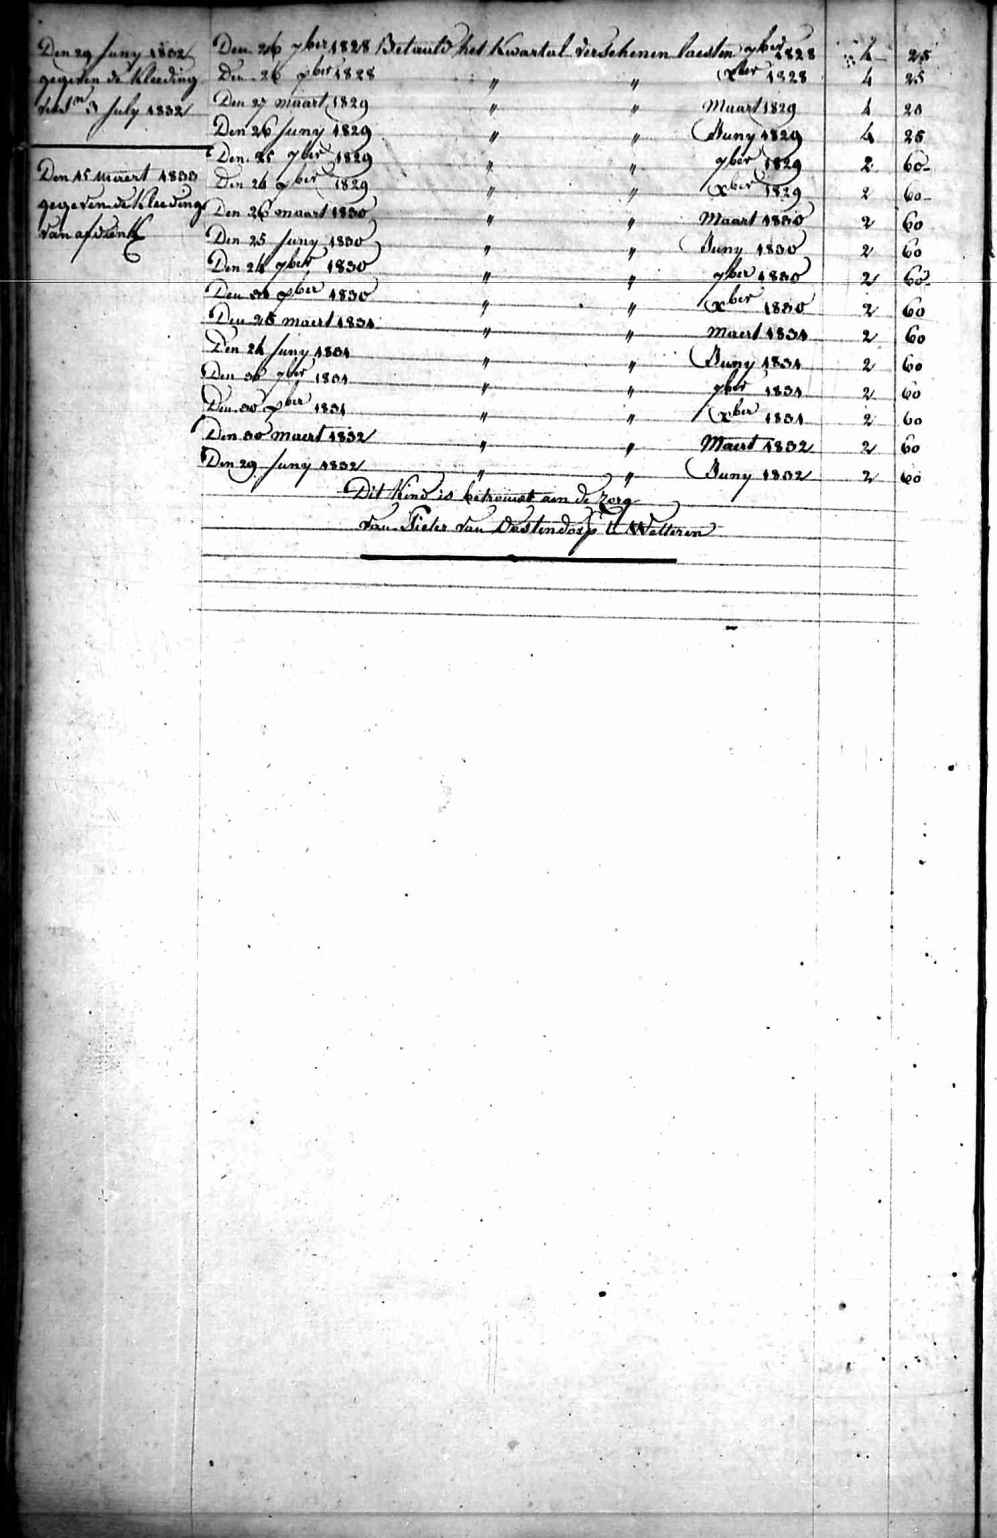 Den 29 Juny 1832
gegeven de Kleeding
3 July 1832
Den 15 Maert 1833
gegeven de Kleeding
van
Den 26 7ber 1828 Betaald het Kwartal verschenen laesten 7ber 1828 4 25
Den 26 xber 1828 " " Xber 1828 4 25
Den 27 maart 1829 " " Maart 1829 4 25
Den 26 Juny 1829 " " Juny 1829 4 25
Den 25 7ber 1829 " " 7ber 1829 2 60
Den 26 xber 1829 " " Xber 1829 2 60
Den 26 maart 1830 " " Maart 1830 2 60
Den 25 Juny 1830 " " Juny 1830 2 60
Den 24 7ber 1830 " " 7ber 1830 2 60
Den 30 xber 1830 " " Xber 1830 2 60
Den 28 maert 1831 " " Maert 1831 2 60
Den 24 Juny 1831 " " Juny 1831 2 60
Den 30 7ber 1831 " " 7ber 1831 2 60
Den 30 xber 1831 " " Xber 1831 2 60
Den 30 maert 1832 " " Maert 1832 2 60
Den 29 Juny 1832 " " Juny 1832 2 60
Dit Kind is betrouwt aen de Zorg
van Pieter van Oostendorp te Wetteren